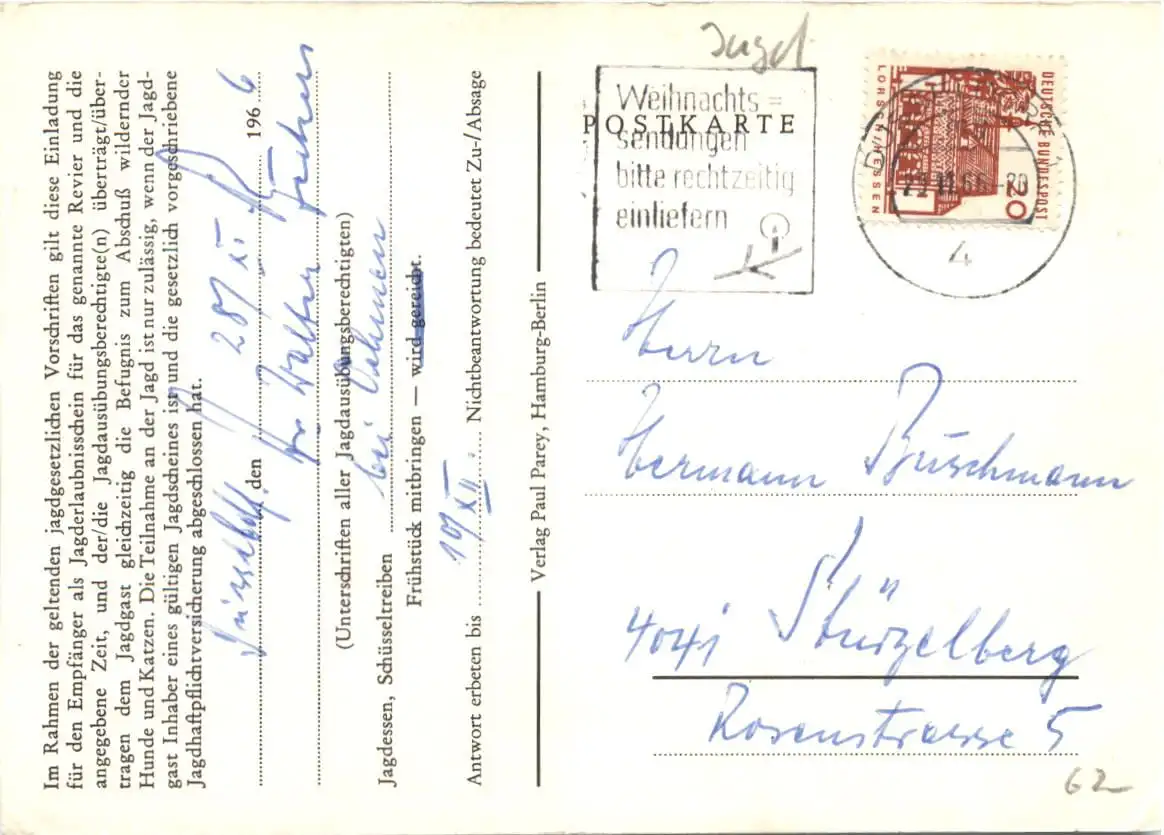 Im Rahmen der geltenden jagdgesetzlichen Vorschriften gilt diese Einladung
für den Empfänger als Jagderlaubnisschein für das genannte Revier und die
angegebene Zeit, und der/die Jagdausübungsberechtigte(n) überträgt/über-
tragen dem Jagdgast gleichzeitig die Befugnis zum Abschuß wildernder
Hunde und Katzen. Die Teilnahme an der Jagd ist nur zulässig, wenn der Jagd-
gast Inhaber eines gültigen Jagdscheines ist und die gesetzlich vorgeschriebene
Jagdhaftpflichtversicherung abgeschlossen hat.
den 28/XI 196 6
Walter
(Unterschriften aller Jagdausübungsberechtigten)
Jagdessen, Schüsseltreiben bei
Frühstück mitbringen — wird gereicht.
Antwort erbeten bis 10/XII. Nichtbeantwortung bedeutet Zu-/Absage
Verlag Paul Parey, Hamburg-Berlin
Jagd
POSTKARTE
Weihnachts=
sendungen
bitte rechtzeitig
einliefern
DEUTSCHE BUNDESPOST
20
LORSCH/HESSEN
4
Herrn
Hermann Buschmann
4041 Stürzelberg
Rosenstrasse 5
62